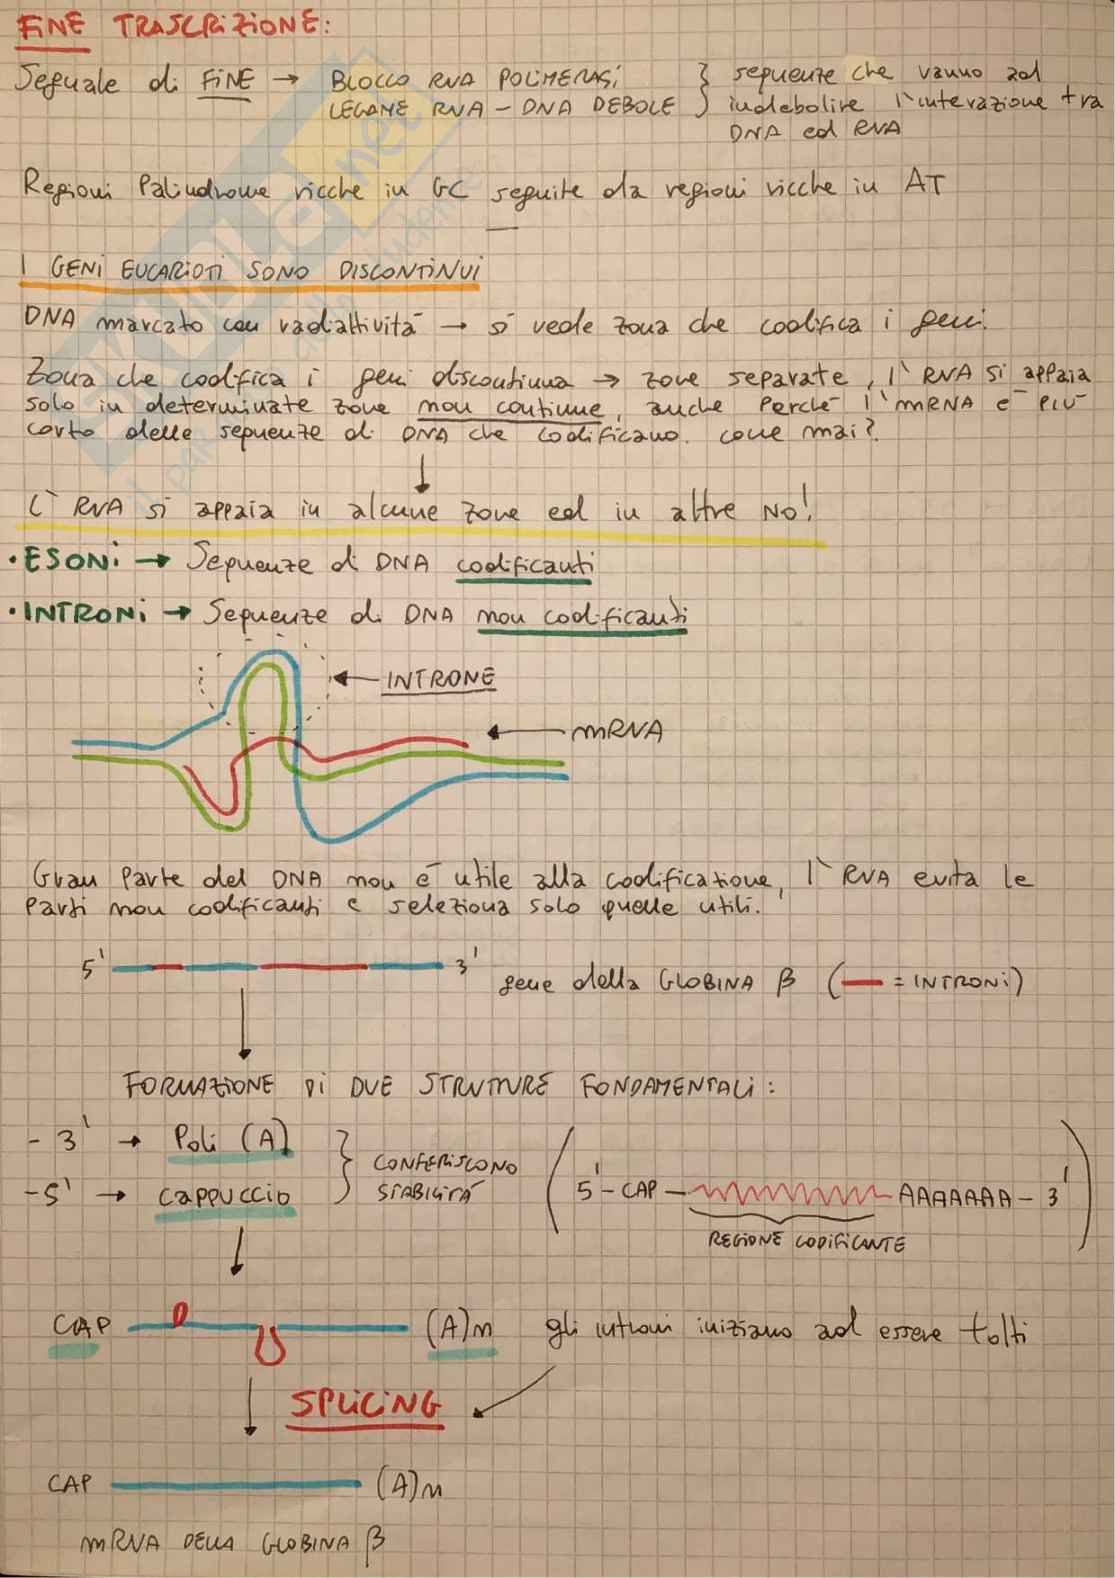 FINE TRASCRIZIONE:
Segnale di FINE → BLOCCO RNA POLIMERASI
LEGAME RNA - DNA DEBOLE
} sequenze che vanno ad
indebolire l'interazione tra
DNA ed RNA
Regioni Palindrome ricche in GC seguite da regioni ricche in AT
I GENI EUCARIOTI SONO DISCONTINUI
DNA marcato con radiattività → si vede zona che codifica i geni.
Zona che codifica i geni discontinua → zone separate, l'RNA si appaia
solo in determinate zone non continue, anche perché l'mRNA è più
corto delle sequenze di DNA che codificano. come mai?
↓
L'RNA si appaia in alcune zone ed in altre NO!
• ESONI → Sequenze di DNA codificanti
• INTRONI → Sequenze di DNA non codificanti
← INTRONE
← mRNA
Gran Parte del DNA non è utile alla codificazione, l'RNA evita le
Parti non codificanti e seleziona solo quelle utili.
5' 3' gene della GLOBINA β ( = INTRONI)
↓
FORMAZIONE DI DUE STRUTTURE FONDAMENTALI:
- 3' → Poli (A)
- 5' → cappuccio
} CONFERISCONO
STABILITÀ
(5' - CAP - AAAAAAA - 3')
REGIONE CODIFICANTE
↓
CAP (A)n gli introni iniziano ad essere tolti
↓ SPLICING
CAP (A)n
mRNA DELLA GLOBINA β